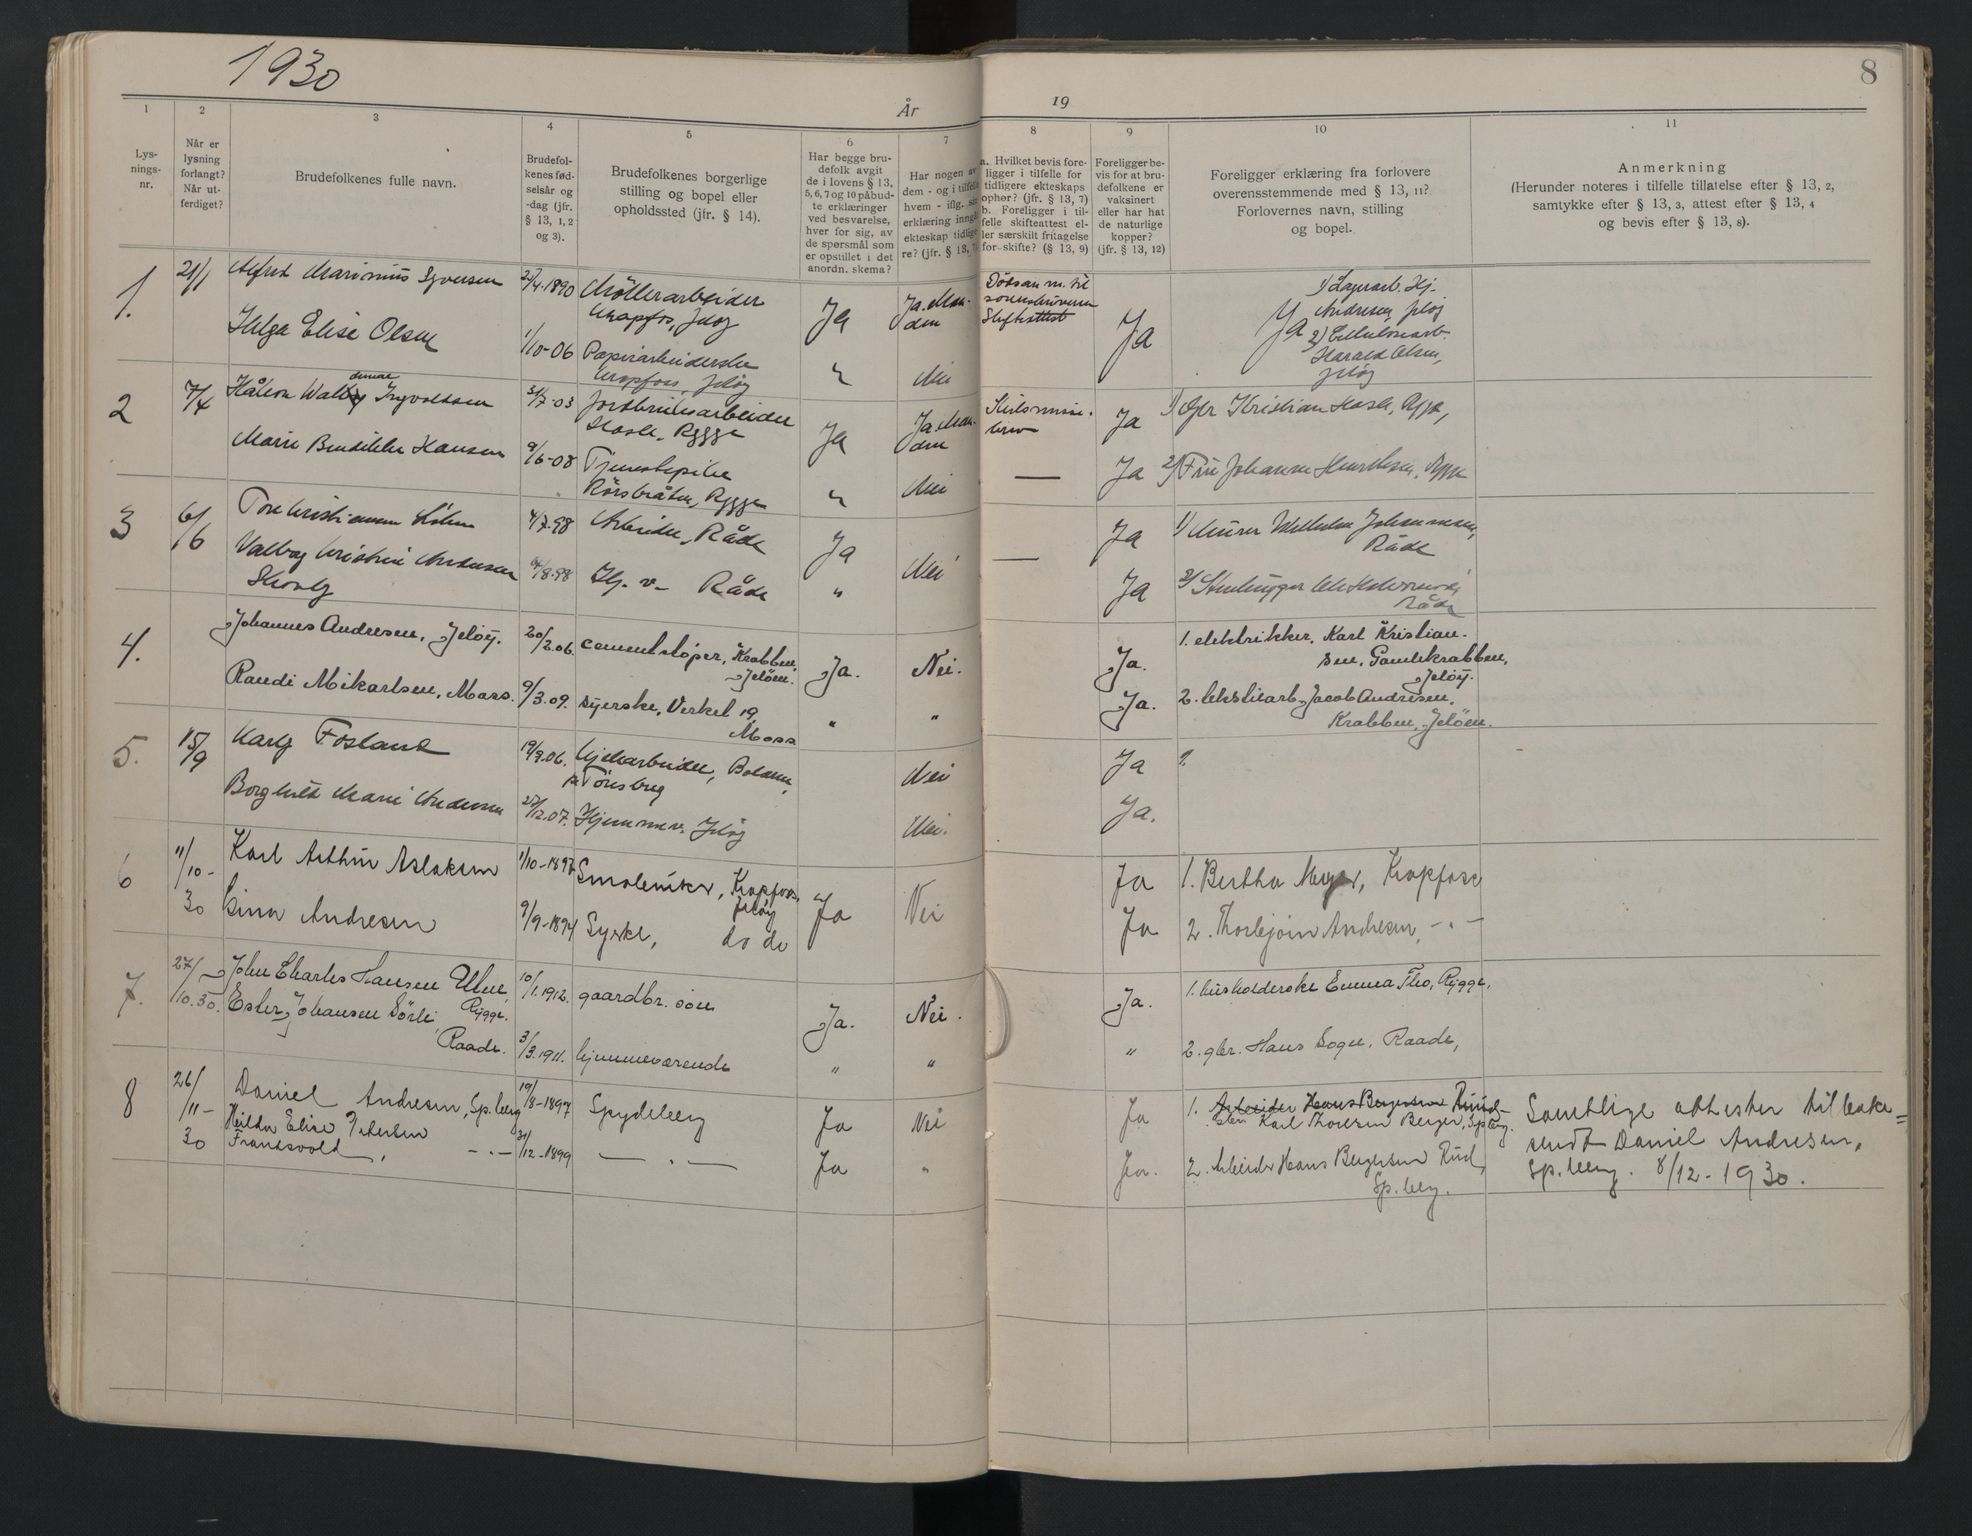 1930
8
År
19
1
Lys-
nings-
nr.
2
Når er
lysning
forlangt?
Når ut-
ferdiget?
3
Brudefolkenes fulle navn.
4
Brudefol-
kenes fød-
selsår og
-dag (jfr.
§ 13, 1, 2
og 3).
5
Brudefolkenes borgerlige
stilling og bopel eller
opholdssted (jfr. § 14).
6
Har begge bru-
defolk avgit
de i lovens § 13,
5, 6, 7 og 10 påbud-
te erklæringer
ved besvarelse,
hver for sig, av
de spørsmål som
er opstillet i det
anordn. skema?
7
Har nogen av
dem - og i tilfelle
hvem - iflg. sin
erklæring inngåt
ekteskap tidlige-
re? (jfr. § 13, 7)
8
a. Hvilket bevis fore-
ligger i tilfelle for
tidligere ekteskaps
ophør? (jfr. § 13, 7)
b. Foreligger i til-
felle skifteattest el-
ler særskilt fritagelse
for skifte? (§ 13, 9)
9
Foreligger be-
vis for at bru-
defolkene er
vaksinert
eller har hat
de naturlige
kopper?
(jfr. § 13, 12)
10
Foreligger erklæring fra forlovere
overensstemmende med § 13, 11?
Forlovernes navn, stilling
og bopel.
11
Anmerkning
(Herunder noteres i tilfelle tillatelse efter § 13, 2,
samtykke efter § 13, 3, attest efter § 13, 4
og bevis efter § 13, 8).
1.
21/1
Alfred Marinius Syversen
24/4.1890
Möllerarbeider
Krapfos, Jeløy
Ja
Ja. Man-
den
Dødsan m. til
Skifteattest
Ja
Ja
1) Lagerarb. Hj.
Andresen, Jeløy
2) Cellulosearb.
Harald Olsen,
Jeløy
Helga Elise Olsen
1/10-06
Papirarbeiderske
Krapfoss, Jeløy
"
Nei
2
7/4
Håkon Waldemar Ingvoldsen
31/7-03
Jordbruksarbeider
Hasle, Rygge
Ja
Ja. Man-
den
Skilsmisse-
brev
Ja
1) Gbr Kristian Hasle, Rygge,
Marie Bendikke Hansen
9/6-08
Tjenestepike
Rörsbråten, Rygge
"
Nei
—
Ja
2) Fru Johanna Henriksen, Rygge
3
6/6
Tore Kristiansen Holm
4/7-98
Arbeider, Råde
Ja
Nei
—
Ja
1) Murer Wilhelm Johannesen,
Råde
Valborg Kristine Andersen
Skovly
/8-98
Hj. v- Råde
"
Ja
2) Stenhugger
Råde
4.
Johannes Andresen, Jeløy.
20/2.06.
cementstøper, Krabben,
Jeløen.
Ja.
Nei.
Ja.
1. elektrikker, Karl Kristian-
sen, Gamlekrabben,
Jeløy.
Randi Mikarlsen, Moss.
9/3.09.
syerske, Verket 19,
Moss.
"
"
Ja.
2. tekstilarb. Jacob Andresen,
Krabben, Jeløen.
5.
15/9
Karly Fosland
19/9.06.
Kjekarbeider, Bolærne,
pr Tønsberg
Nei
Ja
?
Borghild Marie Andersen
27/12.07.
Hjemmev. Jeløy
Nei.
Ja.
6
11/10-
30
Karl Arthur Aslaksen
1/10-1897
Smelteniker, Krapfoss,
Jeløy
Ja
Nei
Ja
1. Bertha Meyer, Krapfoss
Lina Andresen
9/9-1894
Syerske, do do
Ja
2. Thorbjørn Andresen, -"-
7.
27/
10.30.
John Charles Hansen Ulme,
Rygge.
10/1.1912.
gaardbr. søn
Ja.
Nei.
Ja.
1. husholderske Emma Tho, Rygge,
Ester Johansen Sørli
Raade.
3/3.1911.
hjemmeværende
"
"
"
2. gbr. Hans Sogn, Raade,
8
26/
11-
30
Daniel Andresen, Sp.berg
19/8-1897
Spydeberg
Ja
Nei
Ja
1. Arbeider Hans Bergersen Ruud-
sten Karl Thoresen Berger, Spberg.
Samtlige attester tilbake-
sendt Daniel Andresen,
Sp.berg. 8/12-1930.
Hilda Elise Petersen
Frantsvold, -"-
31/12-1899
—"—
Ja
"
Ja.
2. Arbeider Hans Bergersen Rud,
Sp.berg.